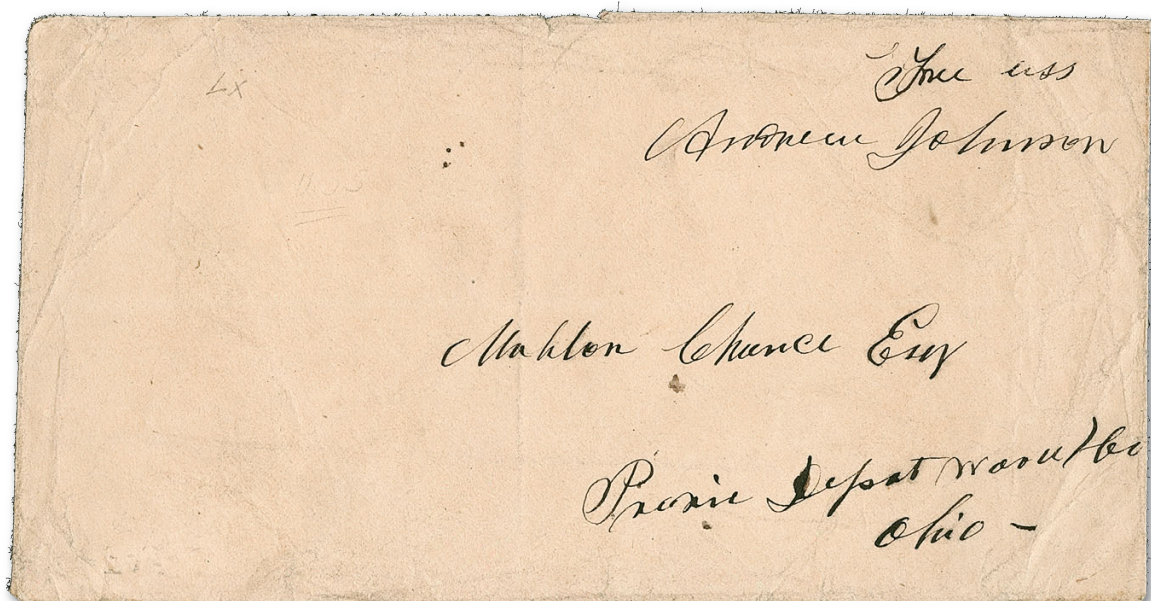 Free uss
Andrew Johnson
Mahlon Chance Esq
Prarie Depot Wood Co
Ohio –